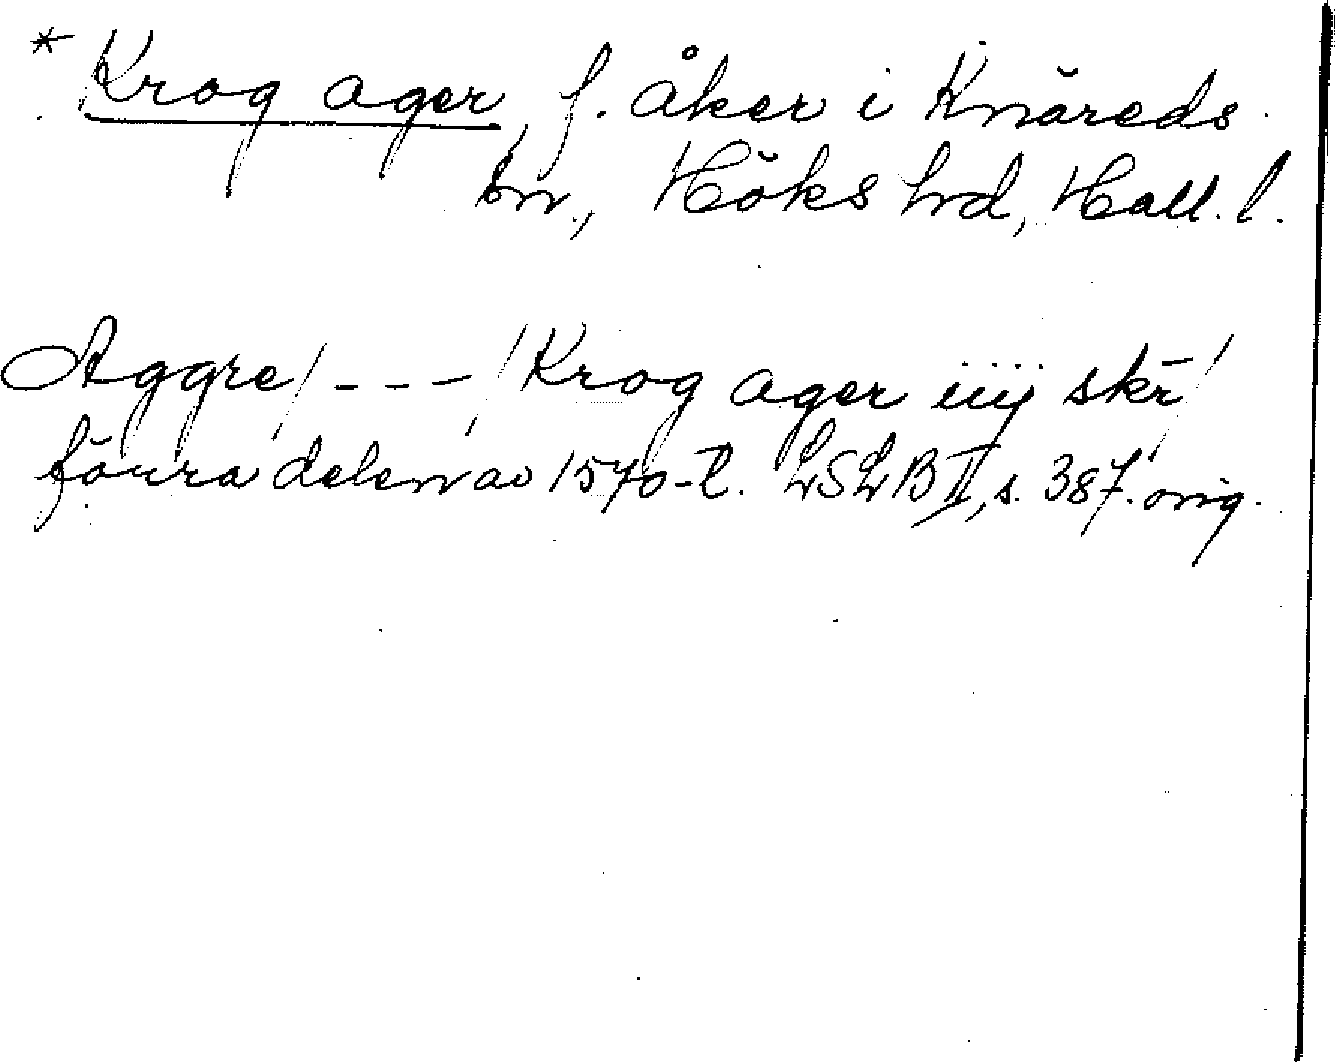 * Krog ager, f. åker i Knäreds
sn., Höks hrd, Hall. l.
Aggre / - - - / Krog ager iiij skr̄ /
förra delen av 1570-t. LSLB II, s. 387. orig.